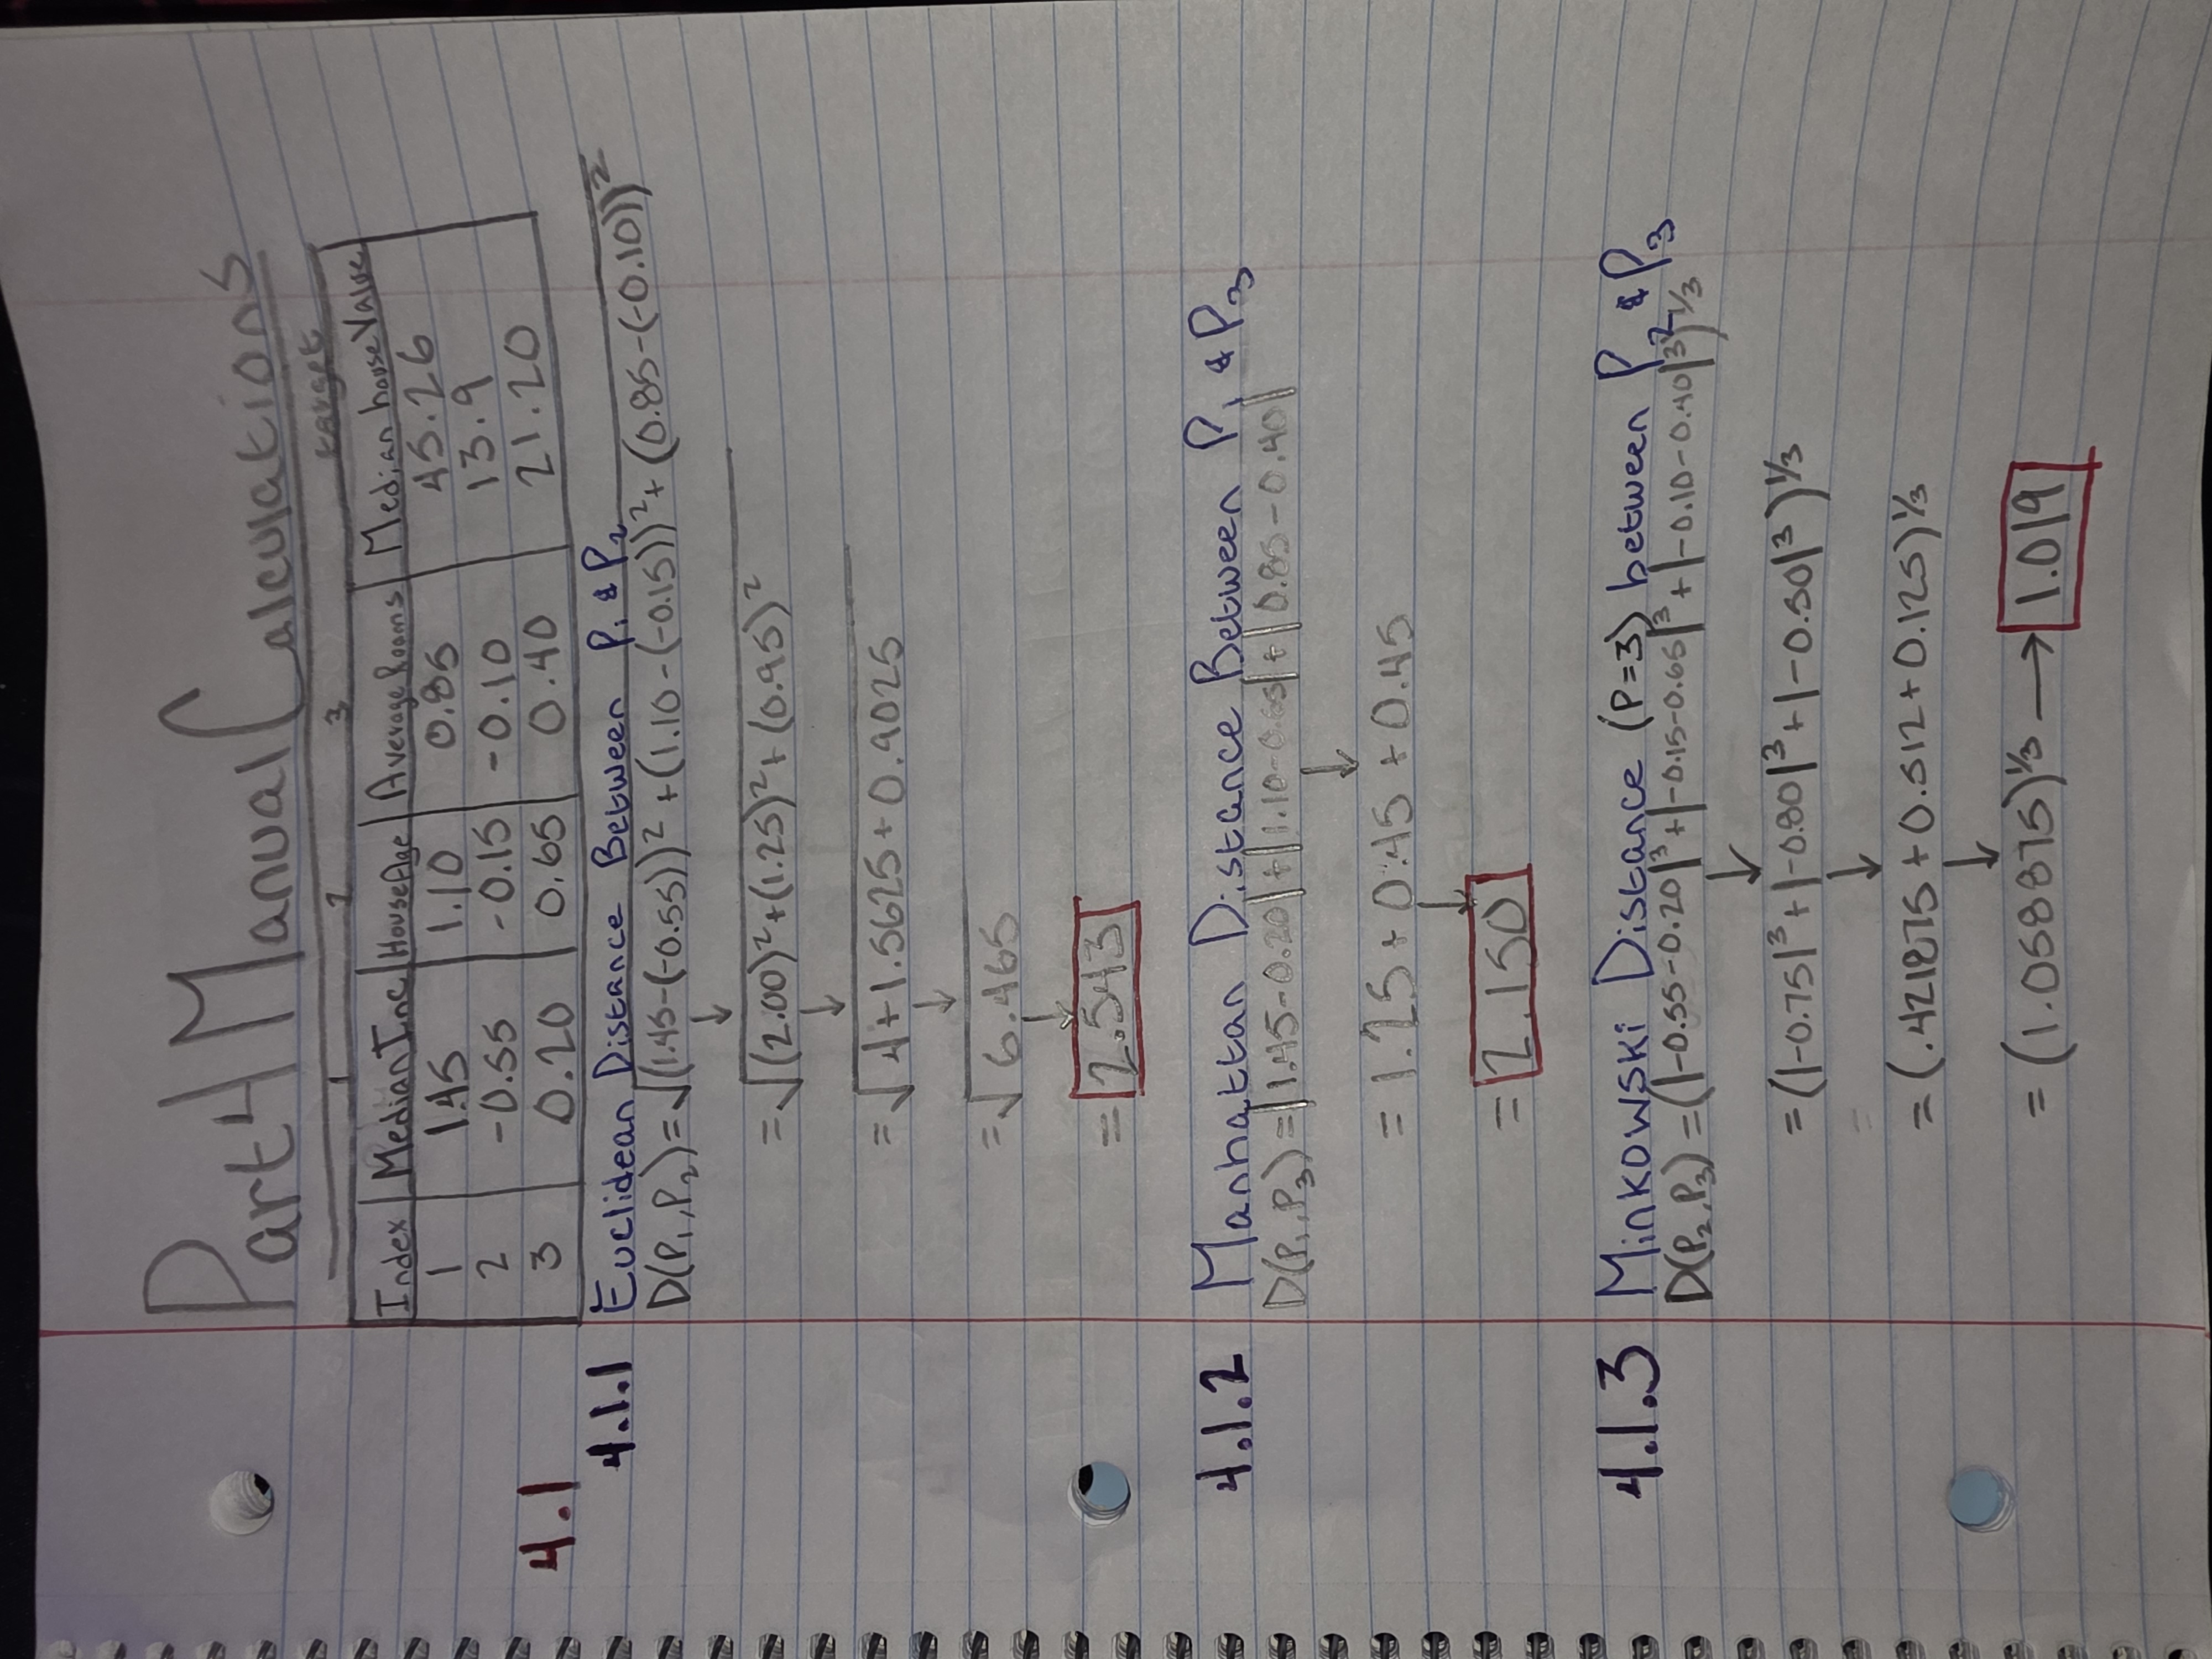 Part 4 Manual Calculations
1 2 3 target
Index MedianInc HouseAge AverageRooms Median houseValue
1 1.45 1.10 0.85 45.26
2 -0.55 -0.15 -0.10 13.9
3 0.20 0.65 0.40 21.20
4.1
4.1.1 Euclidean Distance Between P₁ & P₂
D(P₁,P₂)=√(1.45-(-0.55))² + (1.10-(-0.15))² + (0.85-(-0.10))²
↓
=√(2.00)²+(1.25)²+(0.95)²
↓
=√4+1.5625+0.9025
↓
=√6.465
↓
= 2.543
4.1.2 Manhattan Distance Between P₁ & P₃
D(P₁,P₃)=|1.45-0.20|+|1.10-0.65|+|0.85-0.40|
↓
= 1.25+0.45+0.45
↓
= 2.150
4.1.3 Minkowski Distance (P=3) between P₂ & P₃
D(P₂,P₃)=(|-0.55-0.20|³+|-0.15-0.65|³+|-0.10-0.40|³)^1/3
↓
=(|-0.75|³+|-0.80|³+|-0.50|³)^1/3
↓
=
=(.421875+0.512+0.125)^1/3
↓
=(1.058875)^1/3 → 1.019